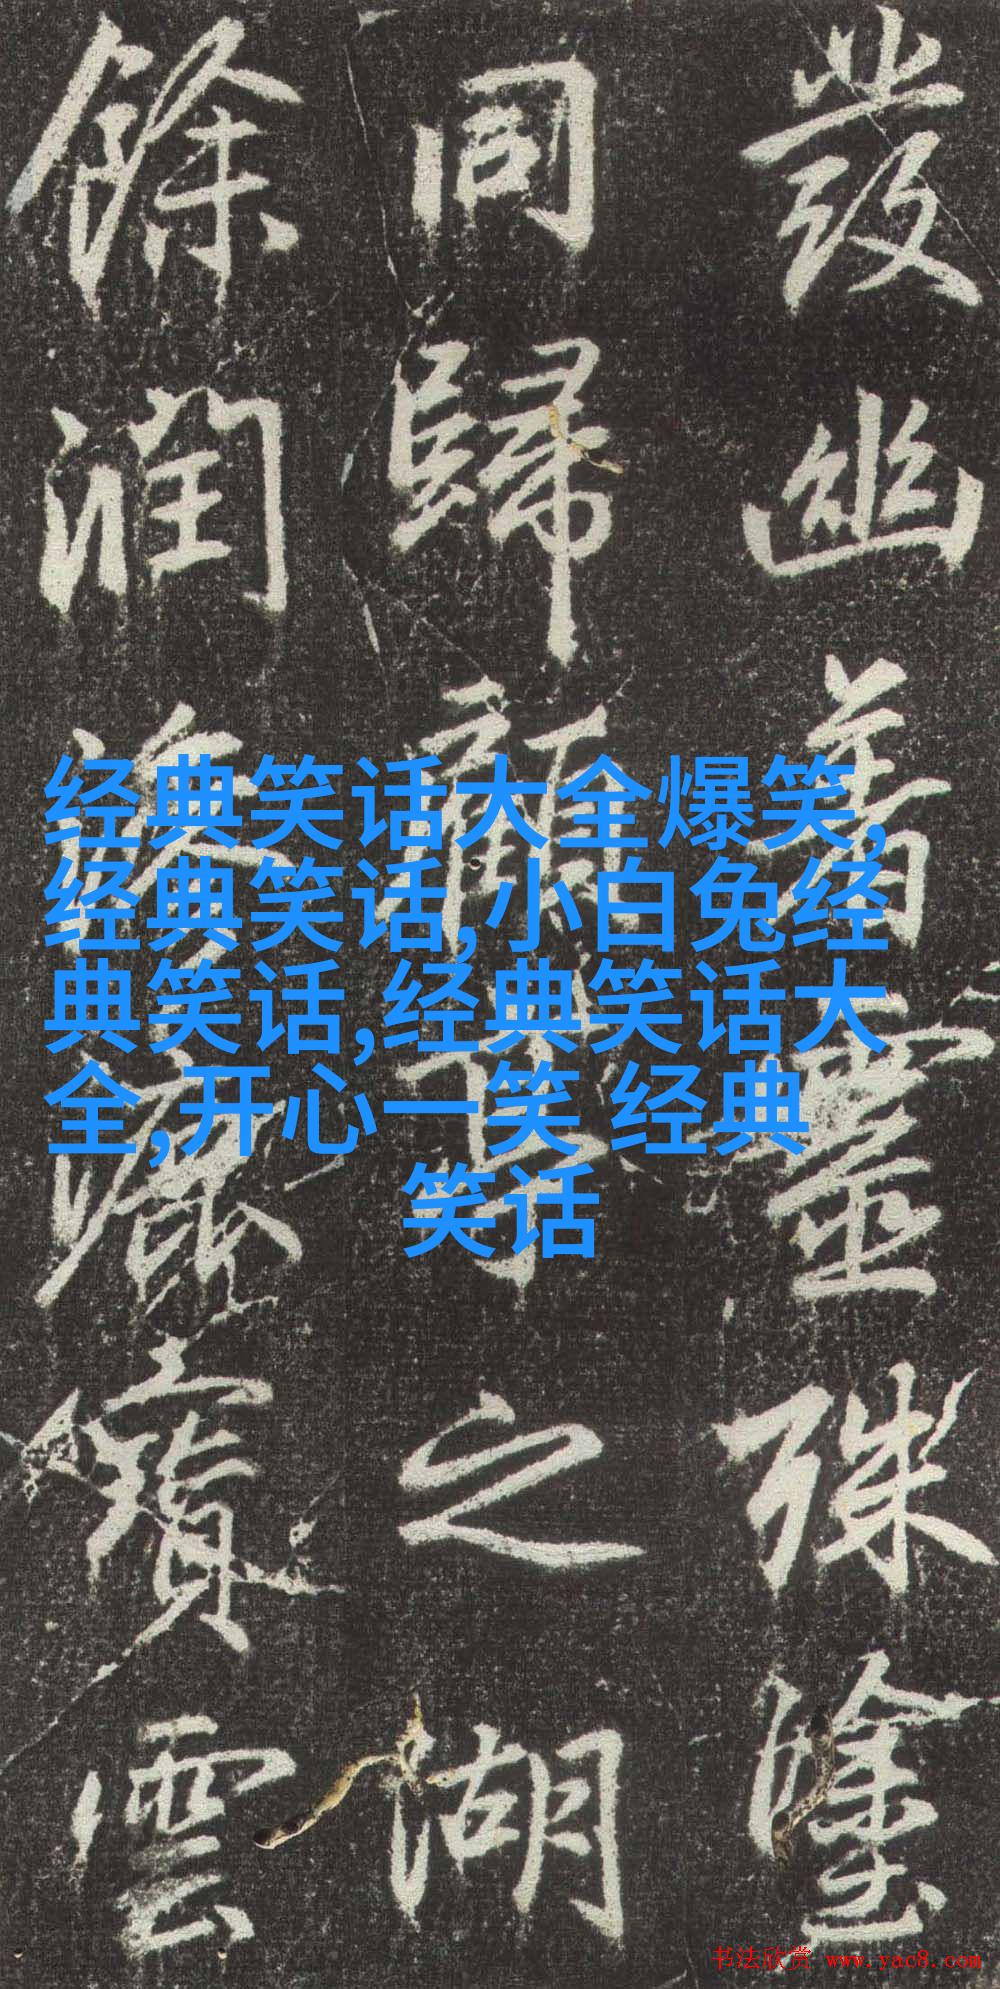 發幽着靈殊塗
同歸顧
之湖
餘潤
寶雲
经典笑话大全爆笑,
经典笑话,小白兔经
典笑话,经典笑话大
全,开心一笑 经典
笑话
书法欣赏 www.yac8.com